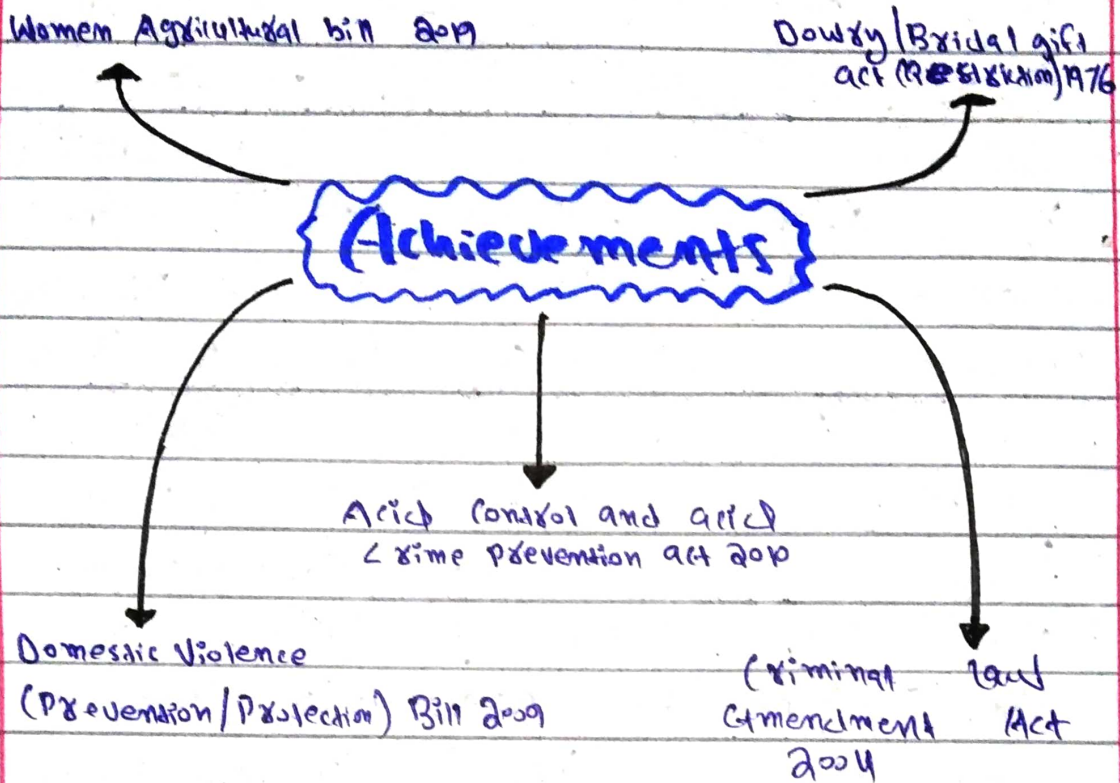 Women Agricultural bill 2019
Dowry/Bridal gift
act (Restriction) 1976
Achievements
Acid Control and acid
Crime prevention act 2010
Domestic Violence
(Prevention/Protection) Bill 2009
Criminal Law
Amendment Act
2004